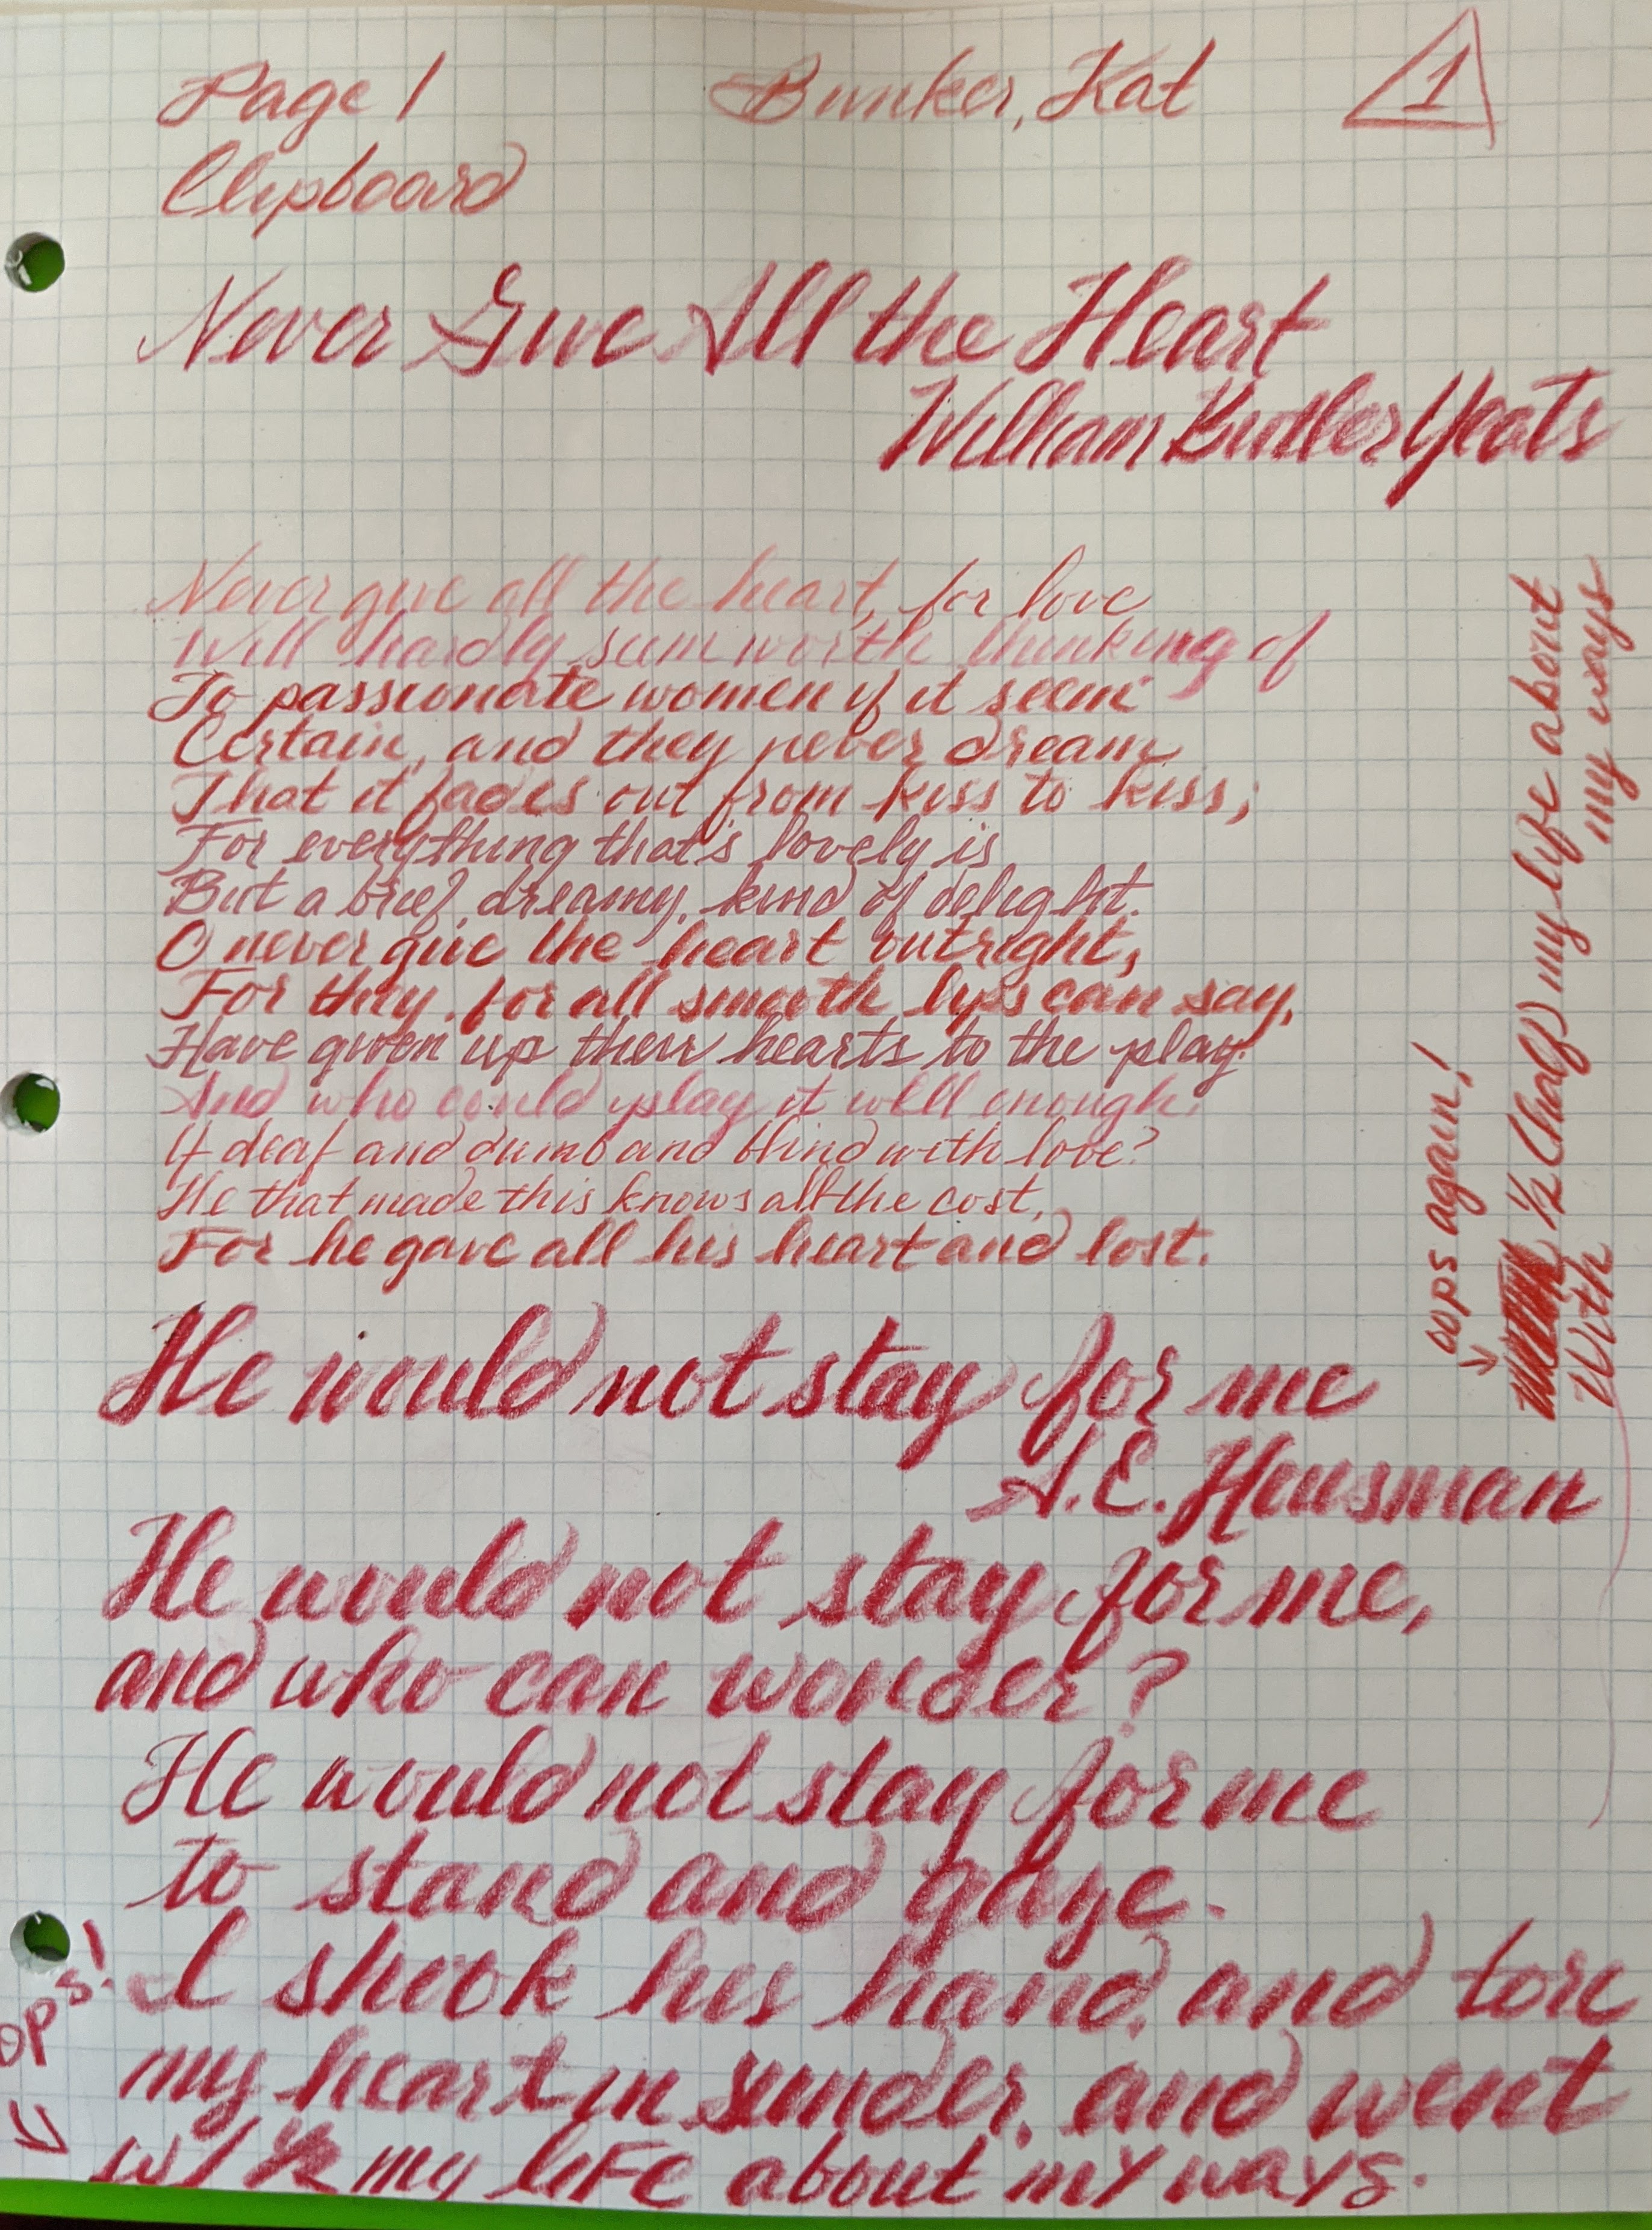 Page 1
Bunker, Kat
1
Clipboard
Never Give All the Heart
William Butler Yeats
Never give all the heart, for love
Will hardly seem worth thinking of
To passionate women if it seem
Certain, and they never dream
That it fades out from kiss to kiss;
For everything that's lovely is
But a brief, dreamy, kind of delight.
O never give the heart outright,
For they, for all smooth lips can say,
Have given up their hearts to the play.
And who could play it well enough
If deaf and dumb and blind with love?
He that made this knows all the cost,
For he gave all his heart and lost.
He would not stay for me
A.E. Housman
He would not stay for me,
and who can wonder?
He would not stay for me
to stand and gaze.
I shook his hand, and tore
my heart in sunder, and went
w/ ½ my life about my ways.
ops!
oops again!
½ (half) my life about
with my ways